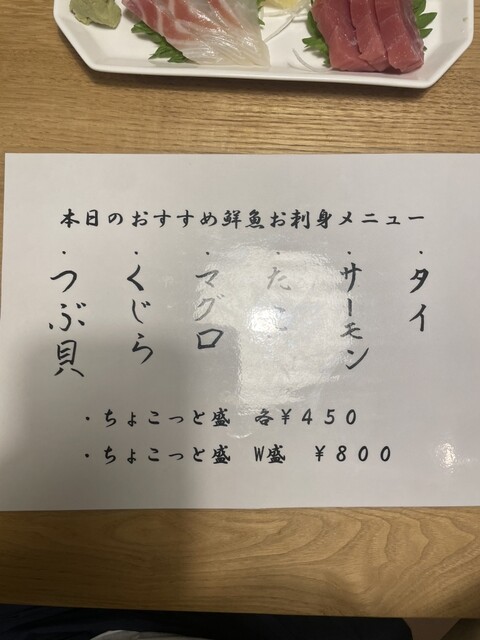 本日のおすすめ鮮魚お刺身メニュー
・タイ
・サーモン
・たこ
・マグロ
・くじら
・つぶ貝
・ちょこっと盛 各¥450
・ちょこっと盛 W盛 ¥800